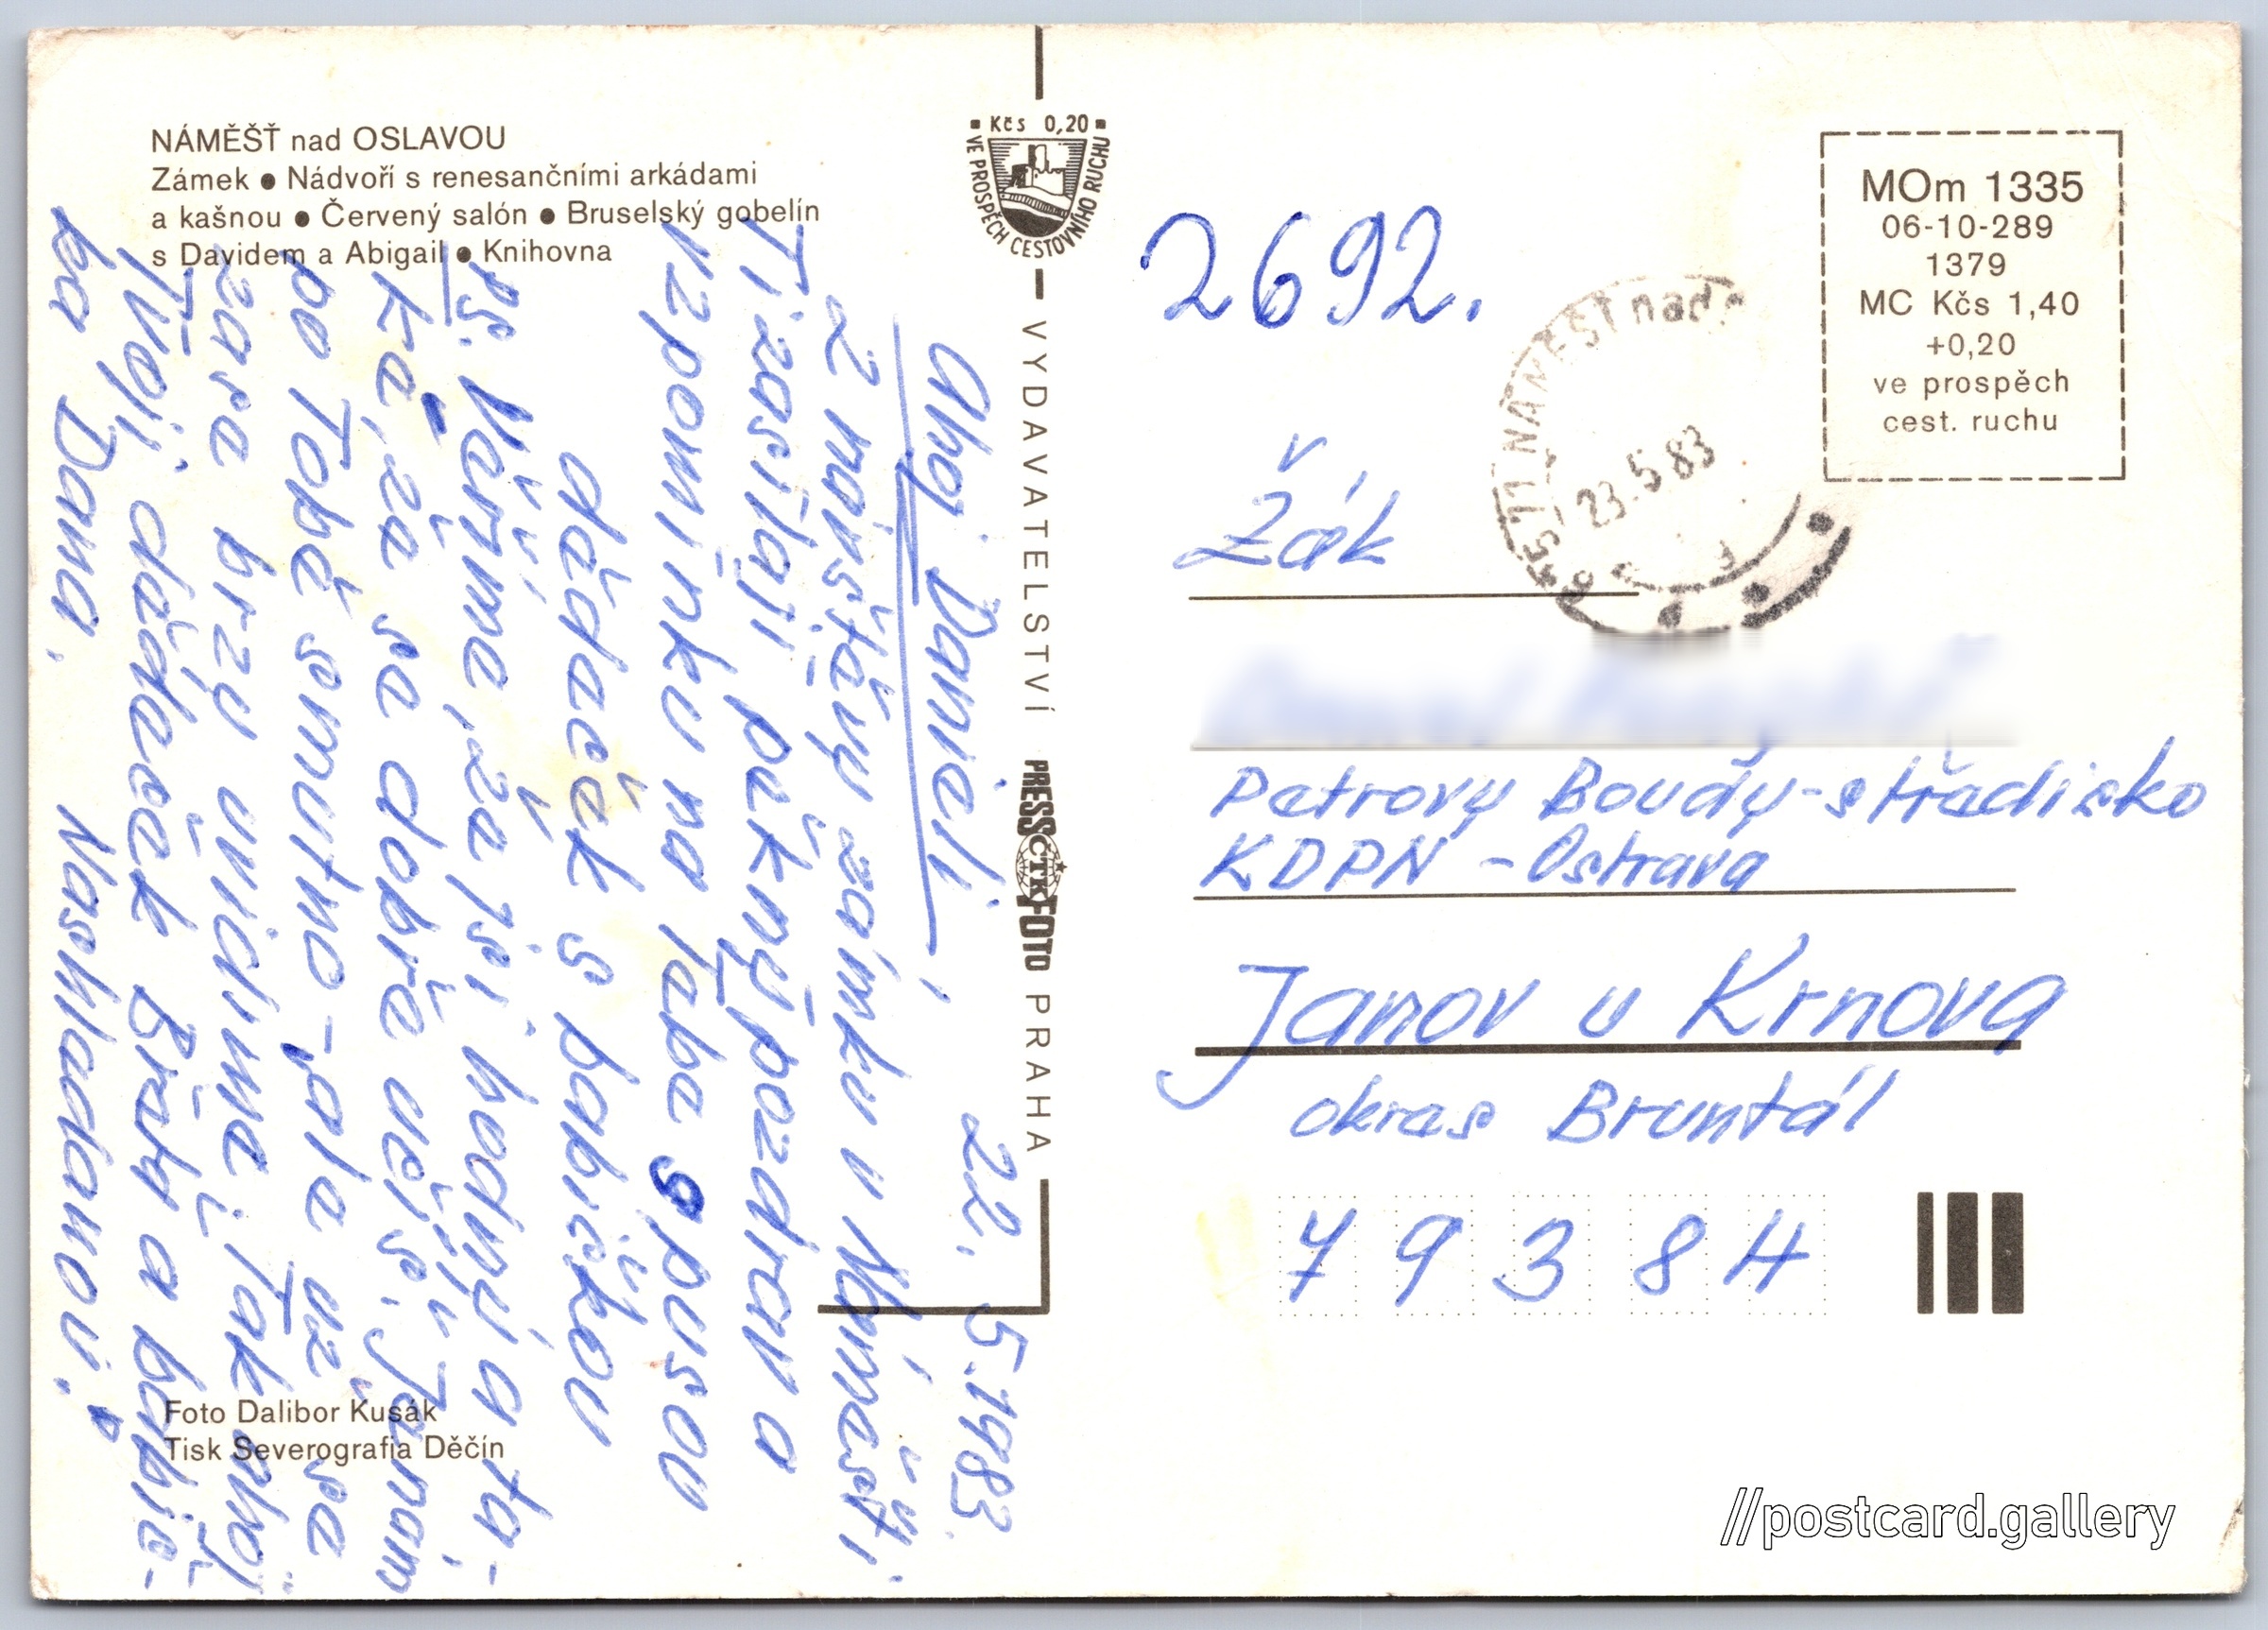 NÁMĚŠŤ nad OSLAVOU
Zámek ● Nádvoří s renesančními arkádami
a kašnou ● Červený salón ● Bruselský gobelín
s Davidem a Abigail ● Knihovna
22. 5. 1983
Ahoj Danieli,
z návštěvy zámku v Náměšti
Ti zasílají pěkný pozdrav a
vzpomínku na Tebe s pusou
dědeček s babičkou
Ps. Věříme, že jsi hodný a ta-
ké, že se dobře učíš. Je nám
po Tobě smutno - ale už se
zase brzy uvidíme. Tak ahoj
Tvoji dědeček Břeťa a babič-
ka Dana.
Nashledanou.
Foto Dalibor Kusák
Tisk Severografia Děčín
Kčs 0,20
VE PROSPĚCH CESTOVNÍHO RUCHU
VYDAVATELSTVÍ PRESSFOTO PRAHA
ČTK
2692.
MOm 1335
06-10-289
1379
MC Kčs 1,40
+0,20
ve prospěch
cest. ruchu
NÁMĚŠŤ nad
23.5.83
Žák
Petrovy Boudy-středisko
KDPN - Ostrava
Janov u Krnova
okres Bruntál
79384
//postcard.gallery